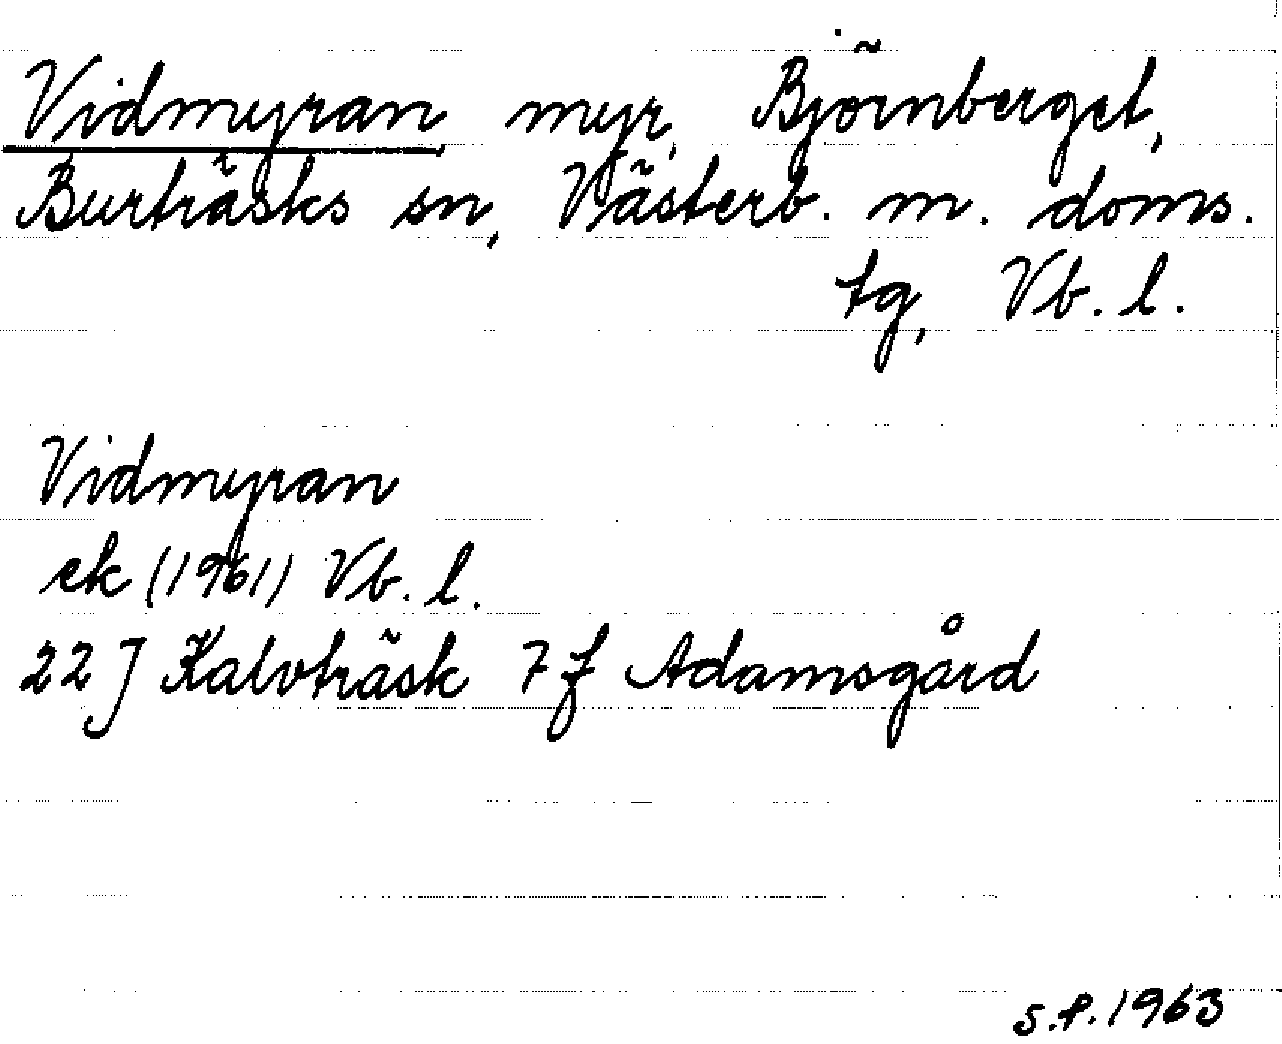 Vidmyran, myr, Björnberget,
Burträsks sn, Västerb. m. doms.
tg, Vb. l.
Vidmyran
ek (1961) Vb. l.
22 J Kalvträsk 7 f Adamsgård
S.P. 1963